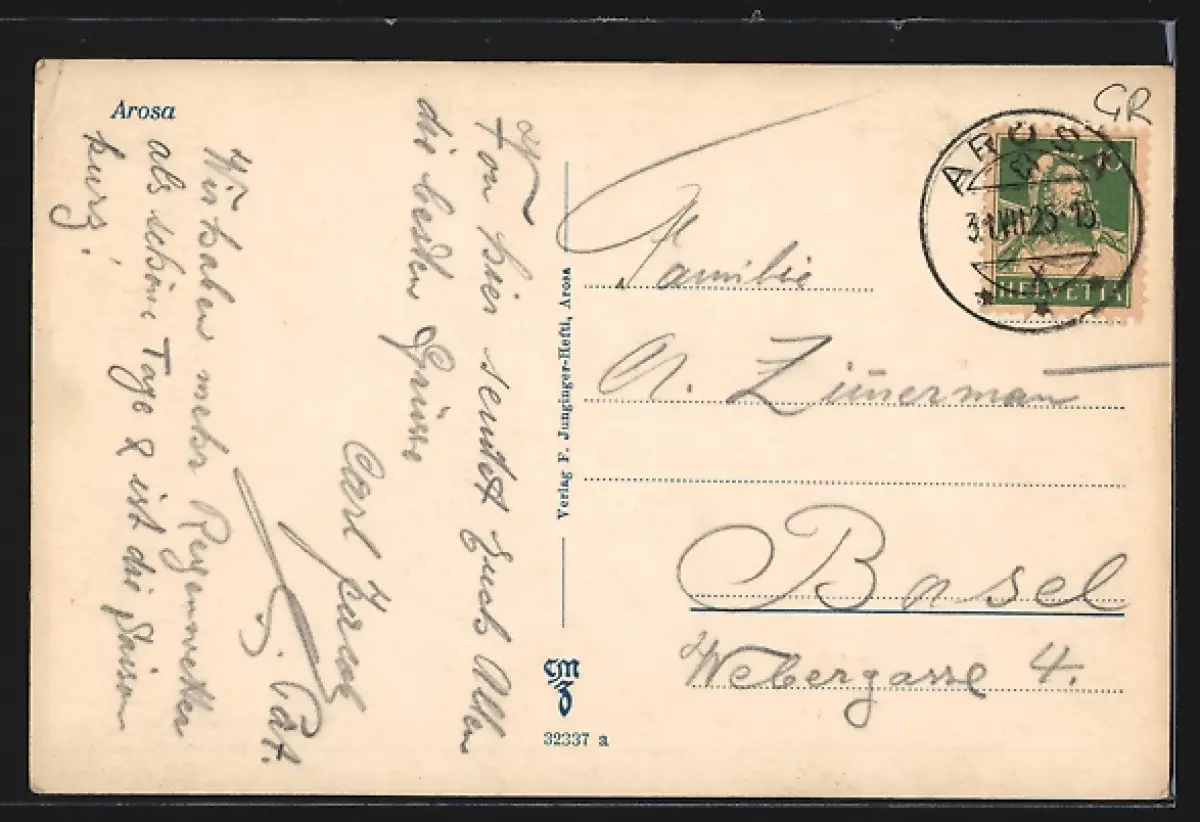 Arosa
Von hier sendet Euch Allen
die besten Grüsse
Carl
Pat.
Wir haben mehr Regenwetter
als schöne Tage & ist die Saison
kurz!
Verlag F. Junginger-Hefti, Arosa
32337 a
GR
AROSA
31.VIII.25-15
HELVETIA
Familie
A. Zimerman
Basel
Webergasse 4.